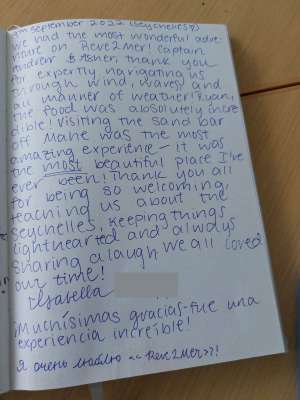 september 2022 (Seychelles♡)
We had the most wonderful adve-
nture on Reve2Mer! Captain
Andrew & Asher, thank you
for expertly navigating us
through wind, waves, and
all manner of weather! Ryan,
the food was absolutely incre-
dible! Visiting the sand bar
off Mahe was the most
amazing experience - it was
the most beautiful place I've
ever been! Thank you all
for being so welcoming,
teaching us about the
Seychelles, keeping things
lighthearted and always
sharing a laugh. We all loved
our time!
Isabella
¡Muchísimas gracias-fue una
experiencia increíble!
Я очень люблю «Reve2Mer»!